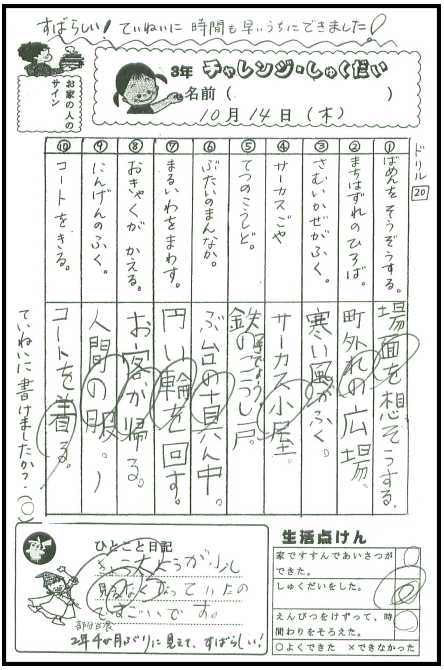 すばらしい! ていねいに 時間も早いうちにできました!
お家の人の
サイン
3年 チャレンジ・しゅくだい
名前( )
10月14日(木)
ドリル
20
① ばめんをそうぞうする。
② まちはずれのひろば。
③ さむいかぜがふく。
④ サーカスごや
⑤ てつのこうしど。
⑥ ぶたいのまんなか。
⑦ まるいわをまわす。
⑧ おきゃくが かえる。
⑨ にんげんのふく。
⑩ コートをきる。
場面を想ぞうする。
町外れの広場。
寒い風がふく。
サーカス小屋。
鉄のこうし戸。
ぶ台の真ん中。
円い輪を回す。
お客が帰る。
人間の服。
コートを着る。
ていねいに書けましたか?(○)
ひとこと日記
きょう太ようが少し
なくなっていたの
ですごいです。
部分日食
2年4か月ぶりに見えて、すばらしい!
生活点けん
家ですすんであいさつが
できた。
○
しゅくだいをした。
○
えんぴつをけずって、時
間わりをそろえた。
○
○よくできた ×できなかった